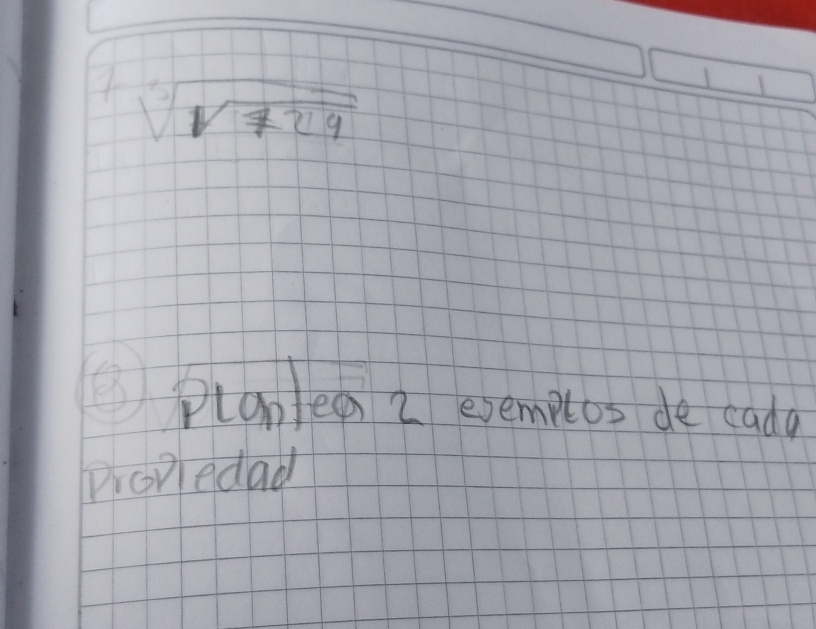 7 ∛√729
8 Plantea 2 ejemplos de cada
propiedad